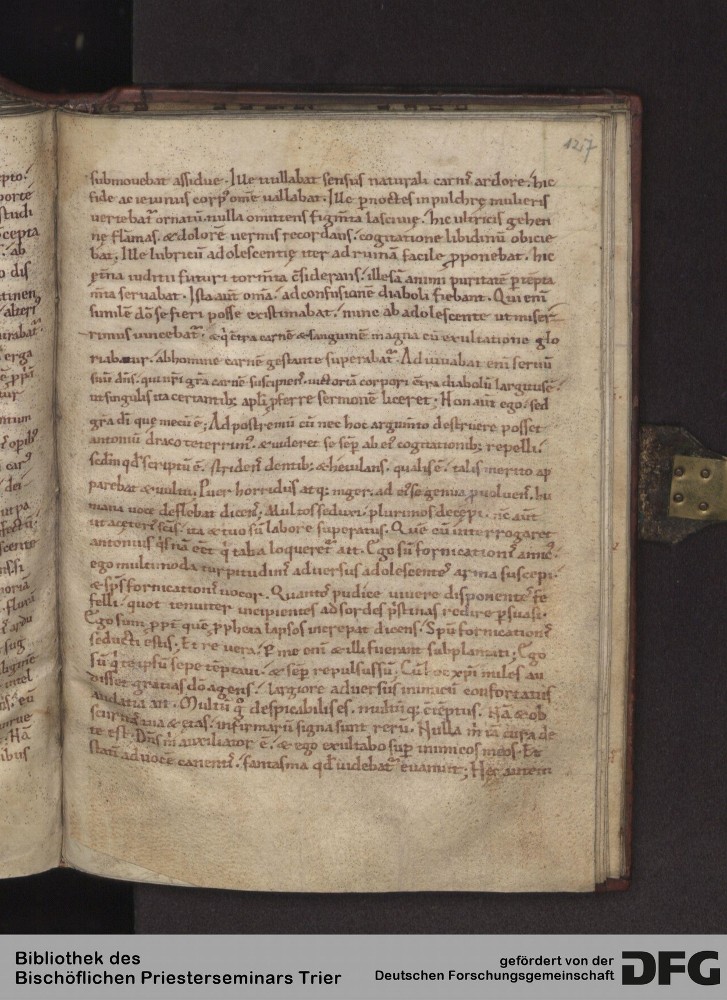 127
submouebat assidue. Ille titillabat sensus naturali carnis ardore. hic
fide ac ieiuniis corp' omē uallabat. Ille p noctes in pulchrę mulieris
uertebat' ornatū. nulla omittens figm̄ta lasciuię. hic ultricis gehen
nę flāmas. & dolorē uermis recordans. cogitatione libidinū obicie
bat. Ille lubricū adolescentię iter ad ruinā facile pponebat. hic
ętn̄a iuditii futuri torm̄ta c̄siderans. illesā animi puritatē p tēpta
m̄ta seruabat. Ista aūt om̄a. ad confusionē diaboli fiebant. Qui enī
similē dō se fieri posse existimabat. nunc ab adolescente ut miser
rimus uincebat'. & q̄ c̄tra carnē & sanguinē magna cū exultatione glo
riabatur. ab homine carnē gestante superabat'. Adiuuabat enī seruū
suū dn̄s. qui nr̄i gr̄a carnē suscipiens. uictoriā corpori c̄tra diabolū largitus ē.
ut singulis ita certantib; apl̄i pferre sermonē liceret. Non aūt ego. sed
gr̄a dī quę mecū ē; Ad postremū cū nec hoc argum̄to destruere posset
antoniū draco teterrim'. & uideret se sēp ab ei' cogitationib; repelli.
scdm̄ qd' scriptū ē. stridens dentib; & heiulans. qualis ē. talis merito ap
parebat & uultu. Puer horridus atq; niger. ad ei' se genua puoluens. hu
mana uoce deflebat dicens. Multos seduxi. plurimos decepi. nc̄ aūt
ut a ceteris sc̄is. ita & tuo sū labore superatus. Que cū interrogaret
antonius q'snā eēt q̄ talia loqueret' ait. Ego sū fornicationis amic'.
ego multimoda turpitudinis aduersus adolescentes arma suscepi.
& sp̄s fornicationis uocor. Quantos pudice uiuere disponentes fe
felli. quot tenuiter incipientes ad sordes p̄stinas redire psuasi.
Ego sum. ppt' quē ppheta lapsos increpat dicens. Spū fornicationis
seducti estis; Et re uera. p me enī & illi fuerant subplantati; Ego
sū q̄ te ipsū sepe tēptaui. & sēp repulsus sū; Cū hoc xpī miles au
disset gratias dō agens. largiore aduersus inimicū confortatus
audatia ait. Multū g° despicabilis es. multūq; c̄tēptus. Nā & ob
scuritas tua & ętas. infirmarū signa sunt rerū. Nulla m̄ iā cura de
te est. Dn̄s m̄ auxiliator ē. & ego exultabo sup inimicos meos. Et
statī ad uocē canentis. fantasma qd' uidebat' euanuit; Hęc autem
Bibliothek des
Bischöflichen Priesterseminars Trier
gefördert von der
Deutschen Forschungsgemeinschaft
DFG